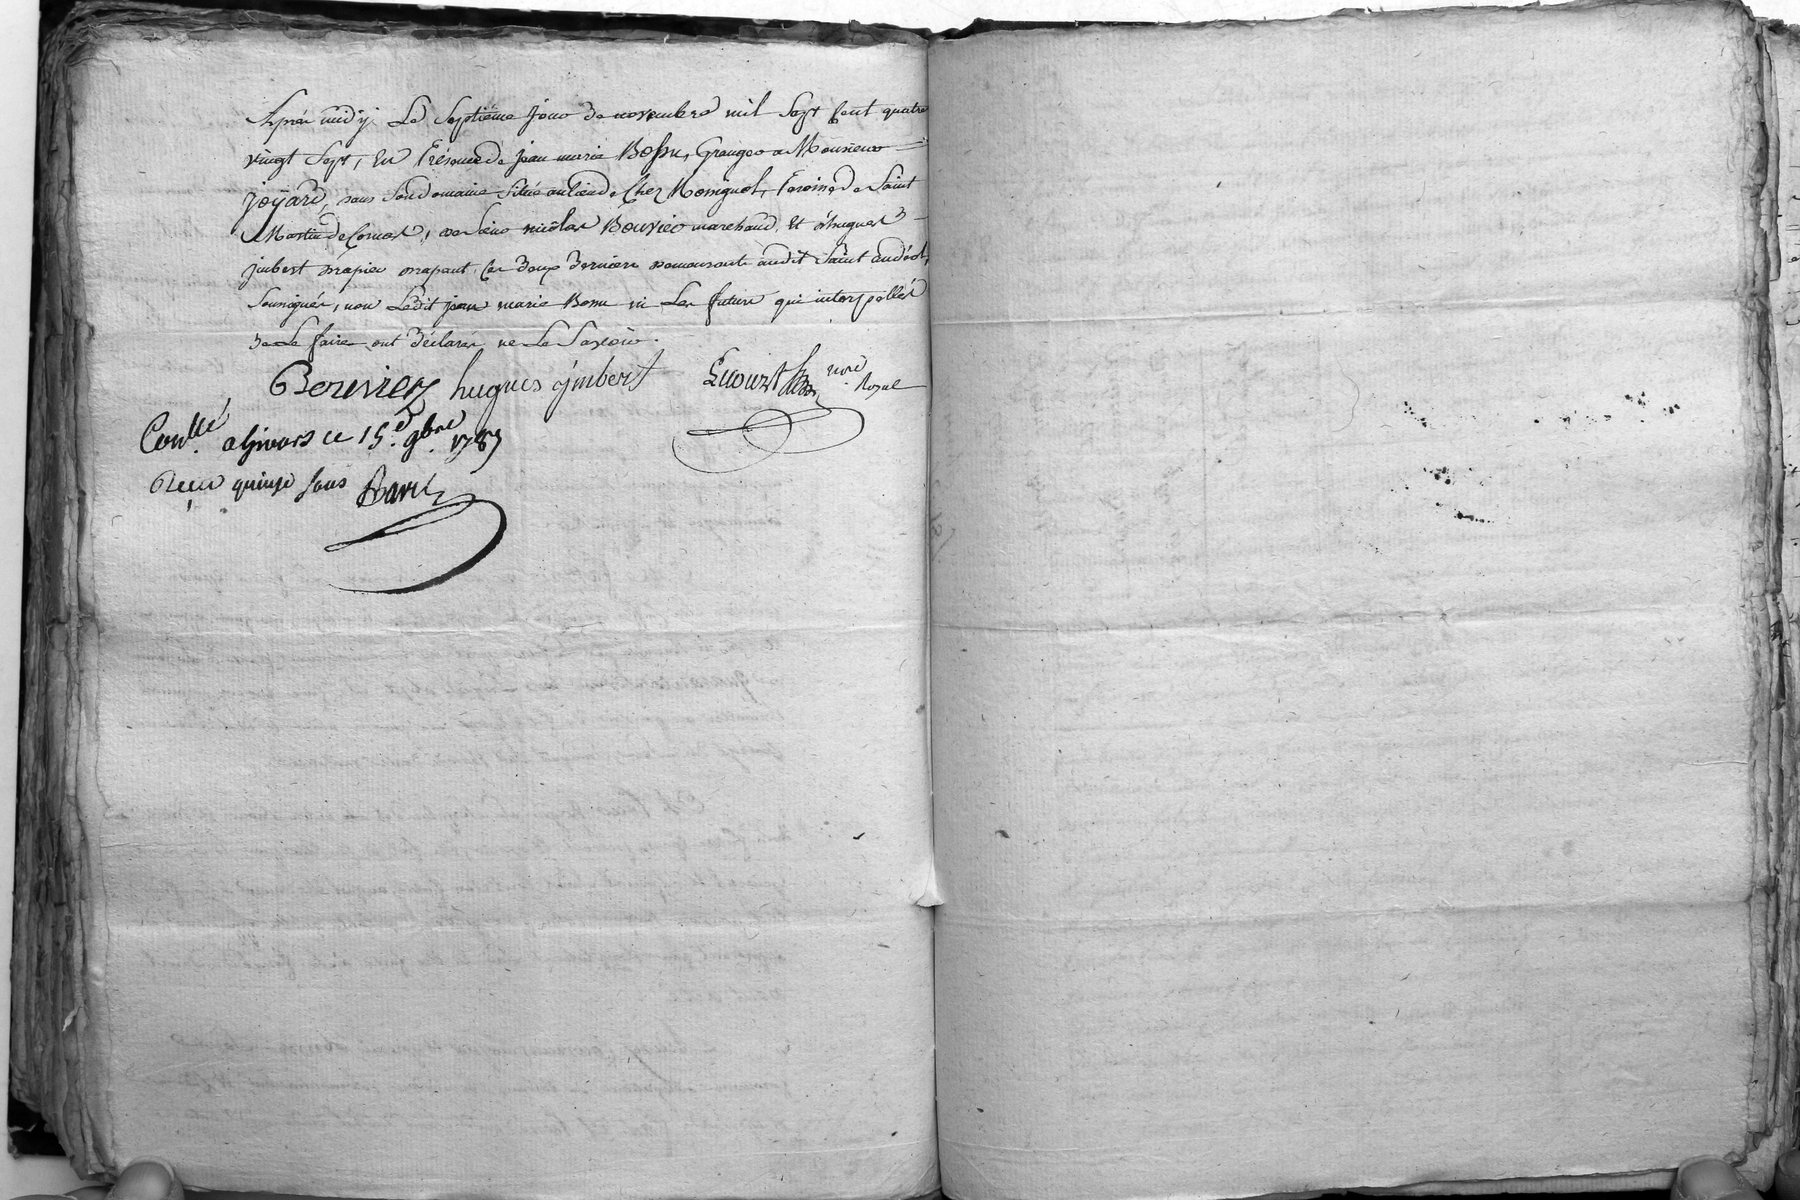 Après midy, Le Septième jour de novembre mil Sept Cent quatre
vingt Sept, En Présence de jean marie Bossu, Granger a Monsieur
joyard, dans Son domaine Situé au lieu de Chez Monignol, Paroisse de Saint
Martin de Cornas, de Sieur nicolas Bouvier marchand, Et d'hugues
jmbert drapier drapant, Ces deux derniers demeurants audit Saint andéol,
Soussignés, non Ledit jean marie Bossu ni Les futurs qui interpellés
de Le faire ont déclarés ne Le Savoir.
Bouvier hugues jmbert nore Royal
Conllé a Givors ce 15.e 9bre. 1787
Reçu quinze sous